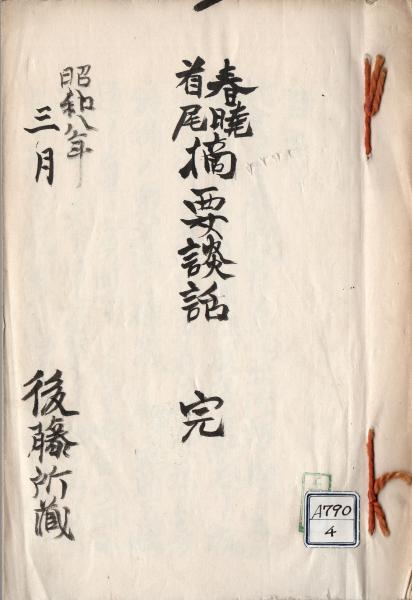 春曉
首尾
摘要談話 完
昭和八年
三月
後藤所藏
A790
4